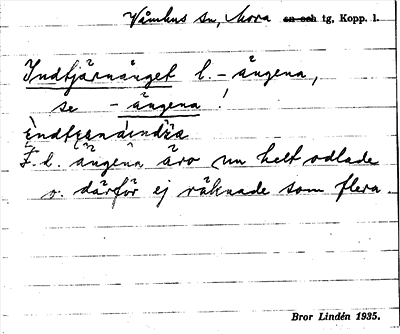 Våmhus sn, Mora sn och tg, Kopp. l.
Indtjärnänget l. - ängena,
se - ängena!
F. d. ängena äro nu helt odlade
o. därför ej räknade som flera.
Bror Lindén 1935.